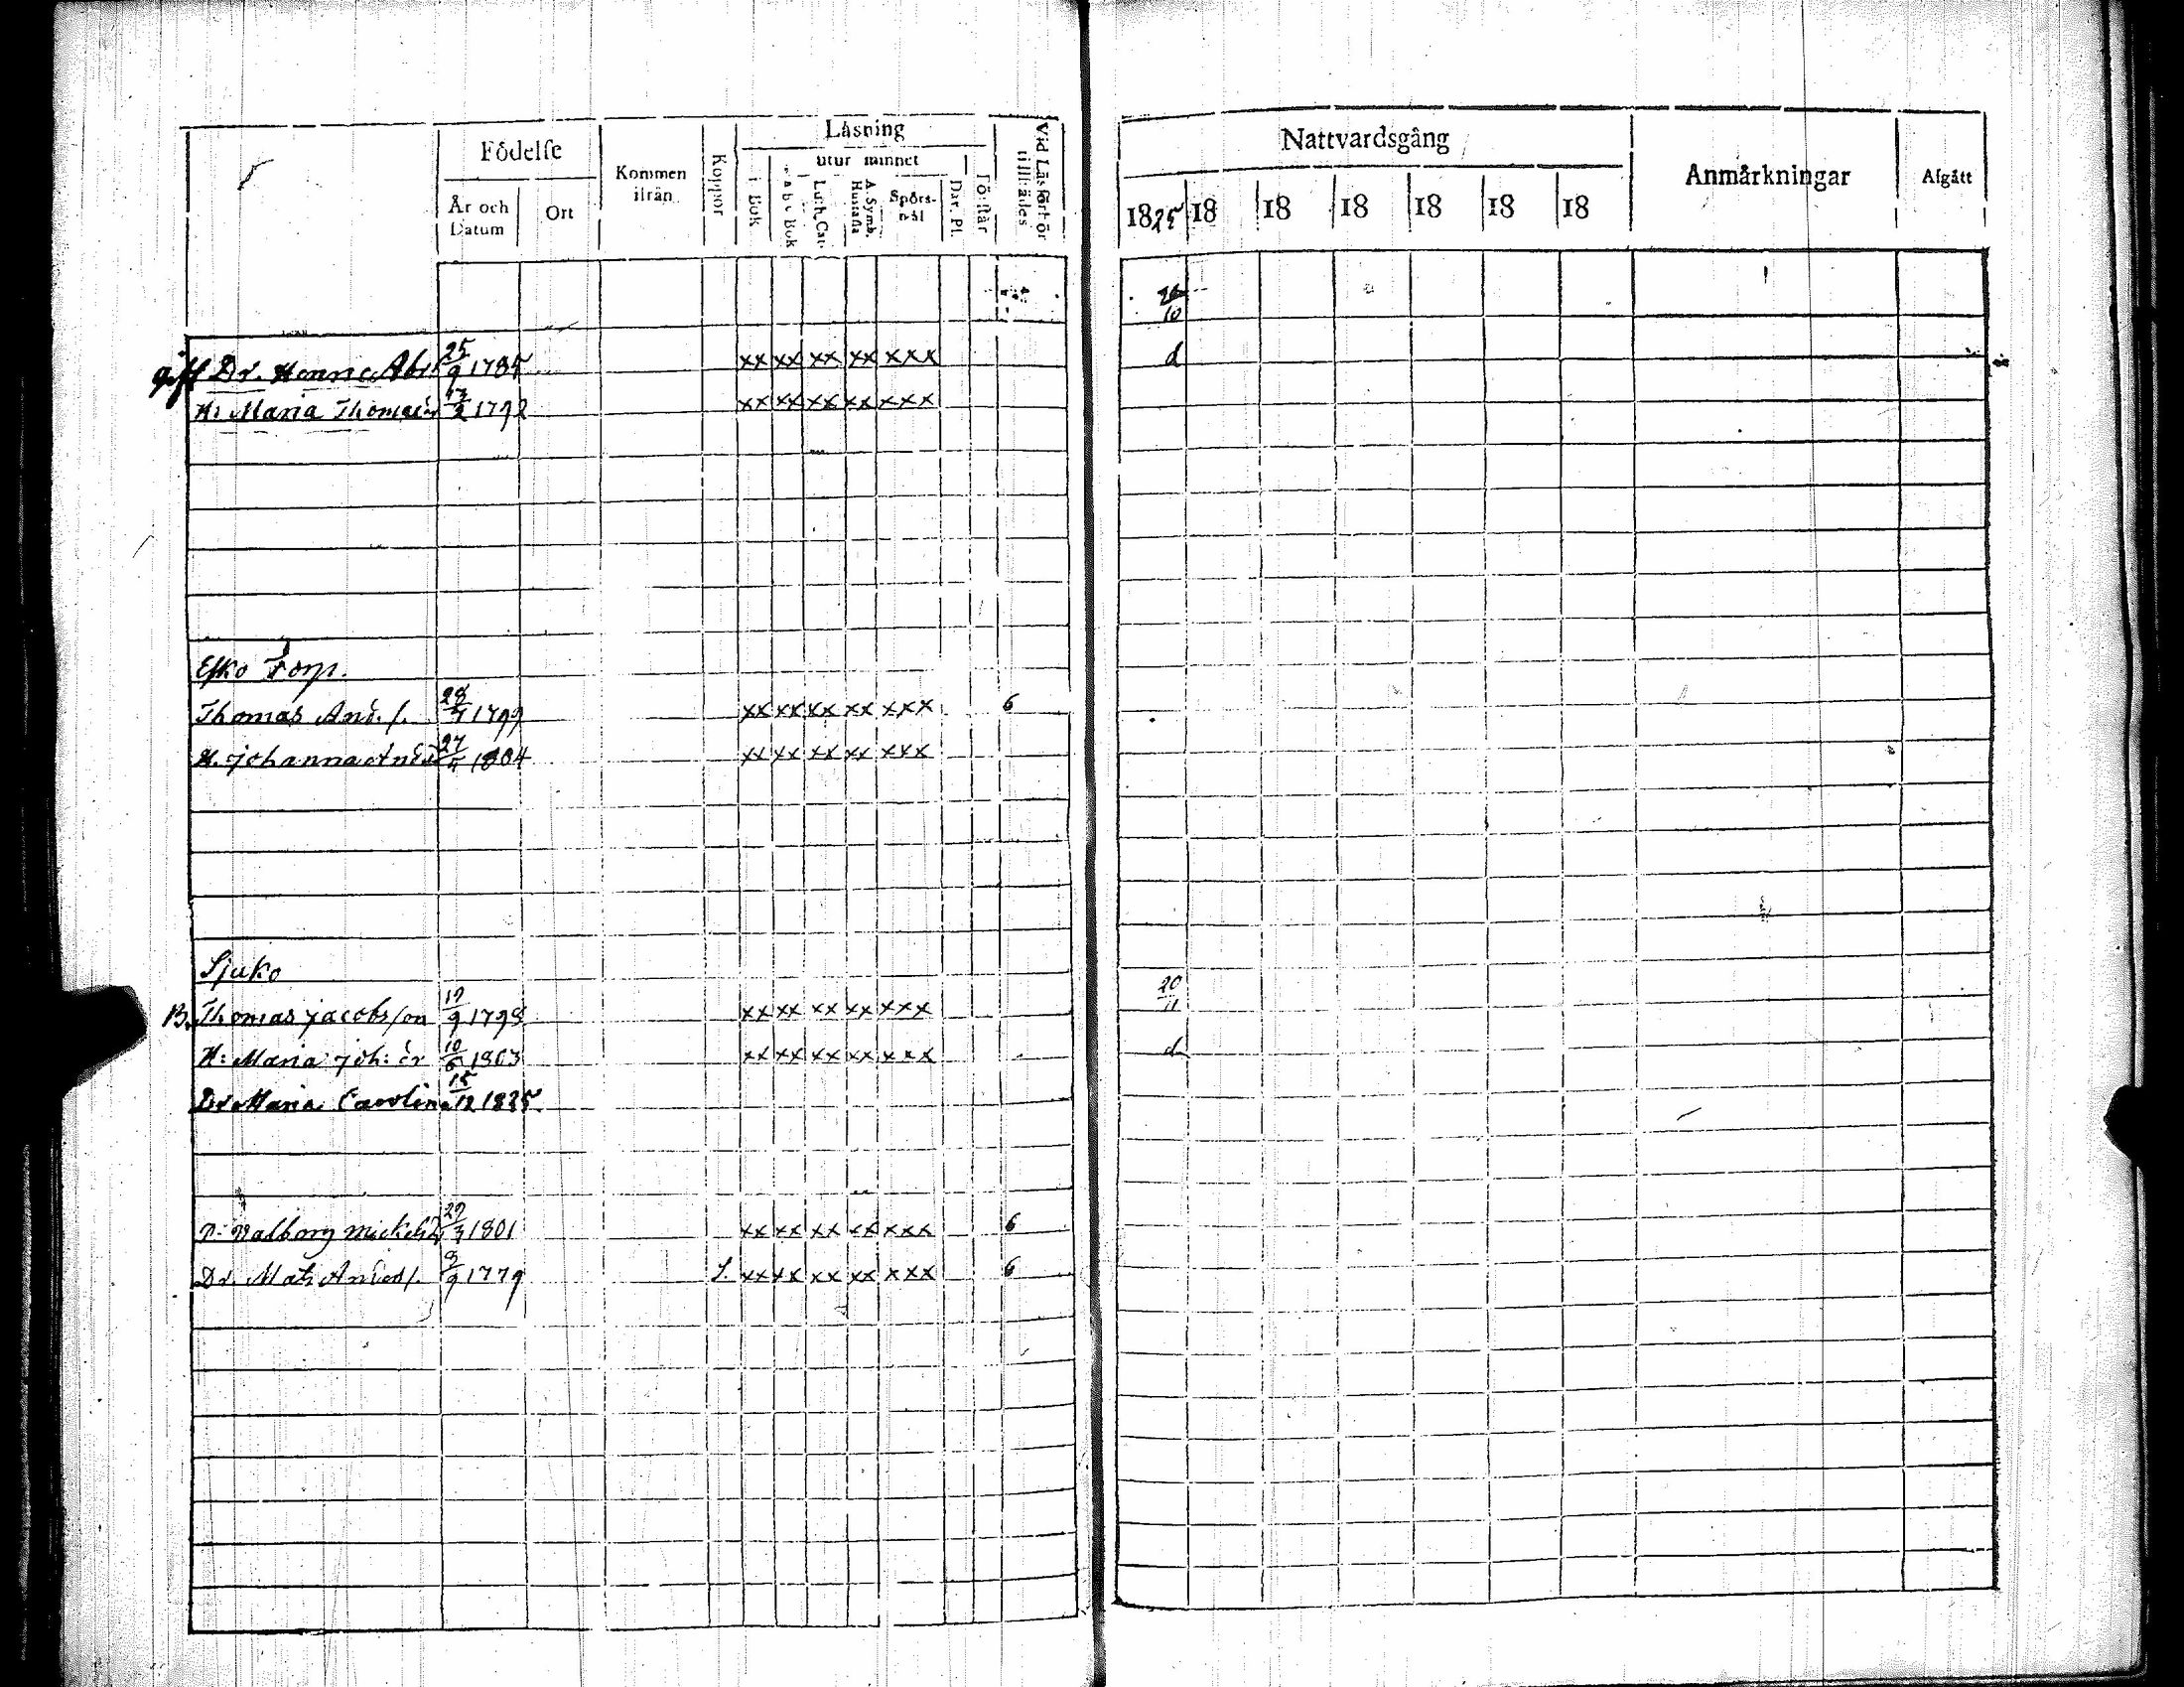 Födelse
Kommen ifrån
Koppor
Läsning
Vid Läsförhör tillstädes
År och Datum
Ort
i Bok
utur minnet
a b c Bok
Luth. Cat.
A. Symb. Hustafla
Spörs-mål
Dav. Ps.
Förstår
Nattvardsgång
Anmärkningar
Afgått
1825 18 18 18 18 18 18
26/10
gift Dr. Henric Abr 25/9 1785 xx xx xx xx xxx d
H: Maria Thomædr 17/2 1792 xx xx xx xx xxx
Esko Torp.
Thomas And. s. 28/7 1799 xx xx xx xx xxx 6
H. Johanna And.dr 27/4 1804 xx xx xx xx xxx
Sjuko
B. Thomas Jacobsson 19/9 1798 xx xx xx xx xxx 20/11
H: Maria Joh: dr 10/6 1803 xx xx xx xx xxx d
Dr Maria Carolina 15/12 1825
Valborg Mickelsdr 29/3 1801 xx xx xx xx xxx 6
Dr. Mats Anders. 8/9 1779 xx xx xx xx xxx 6